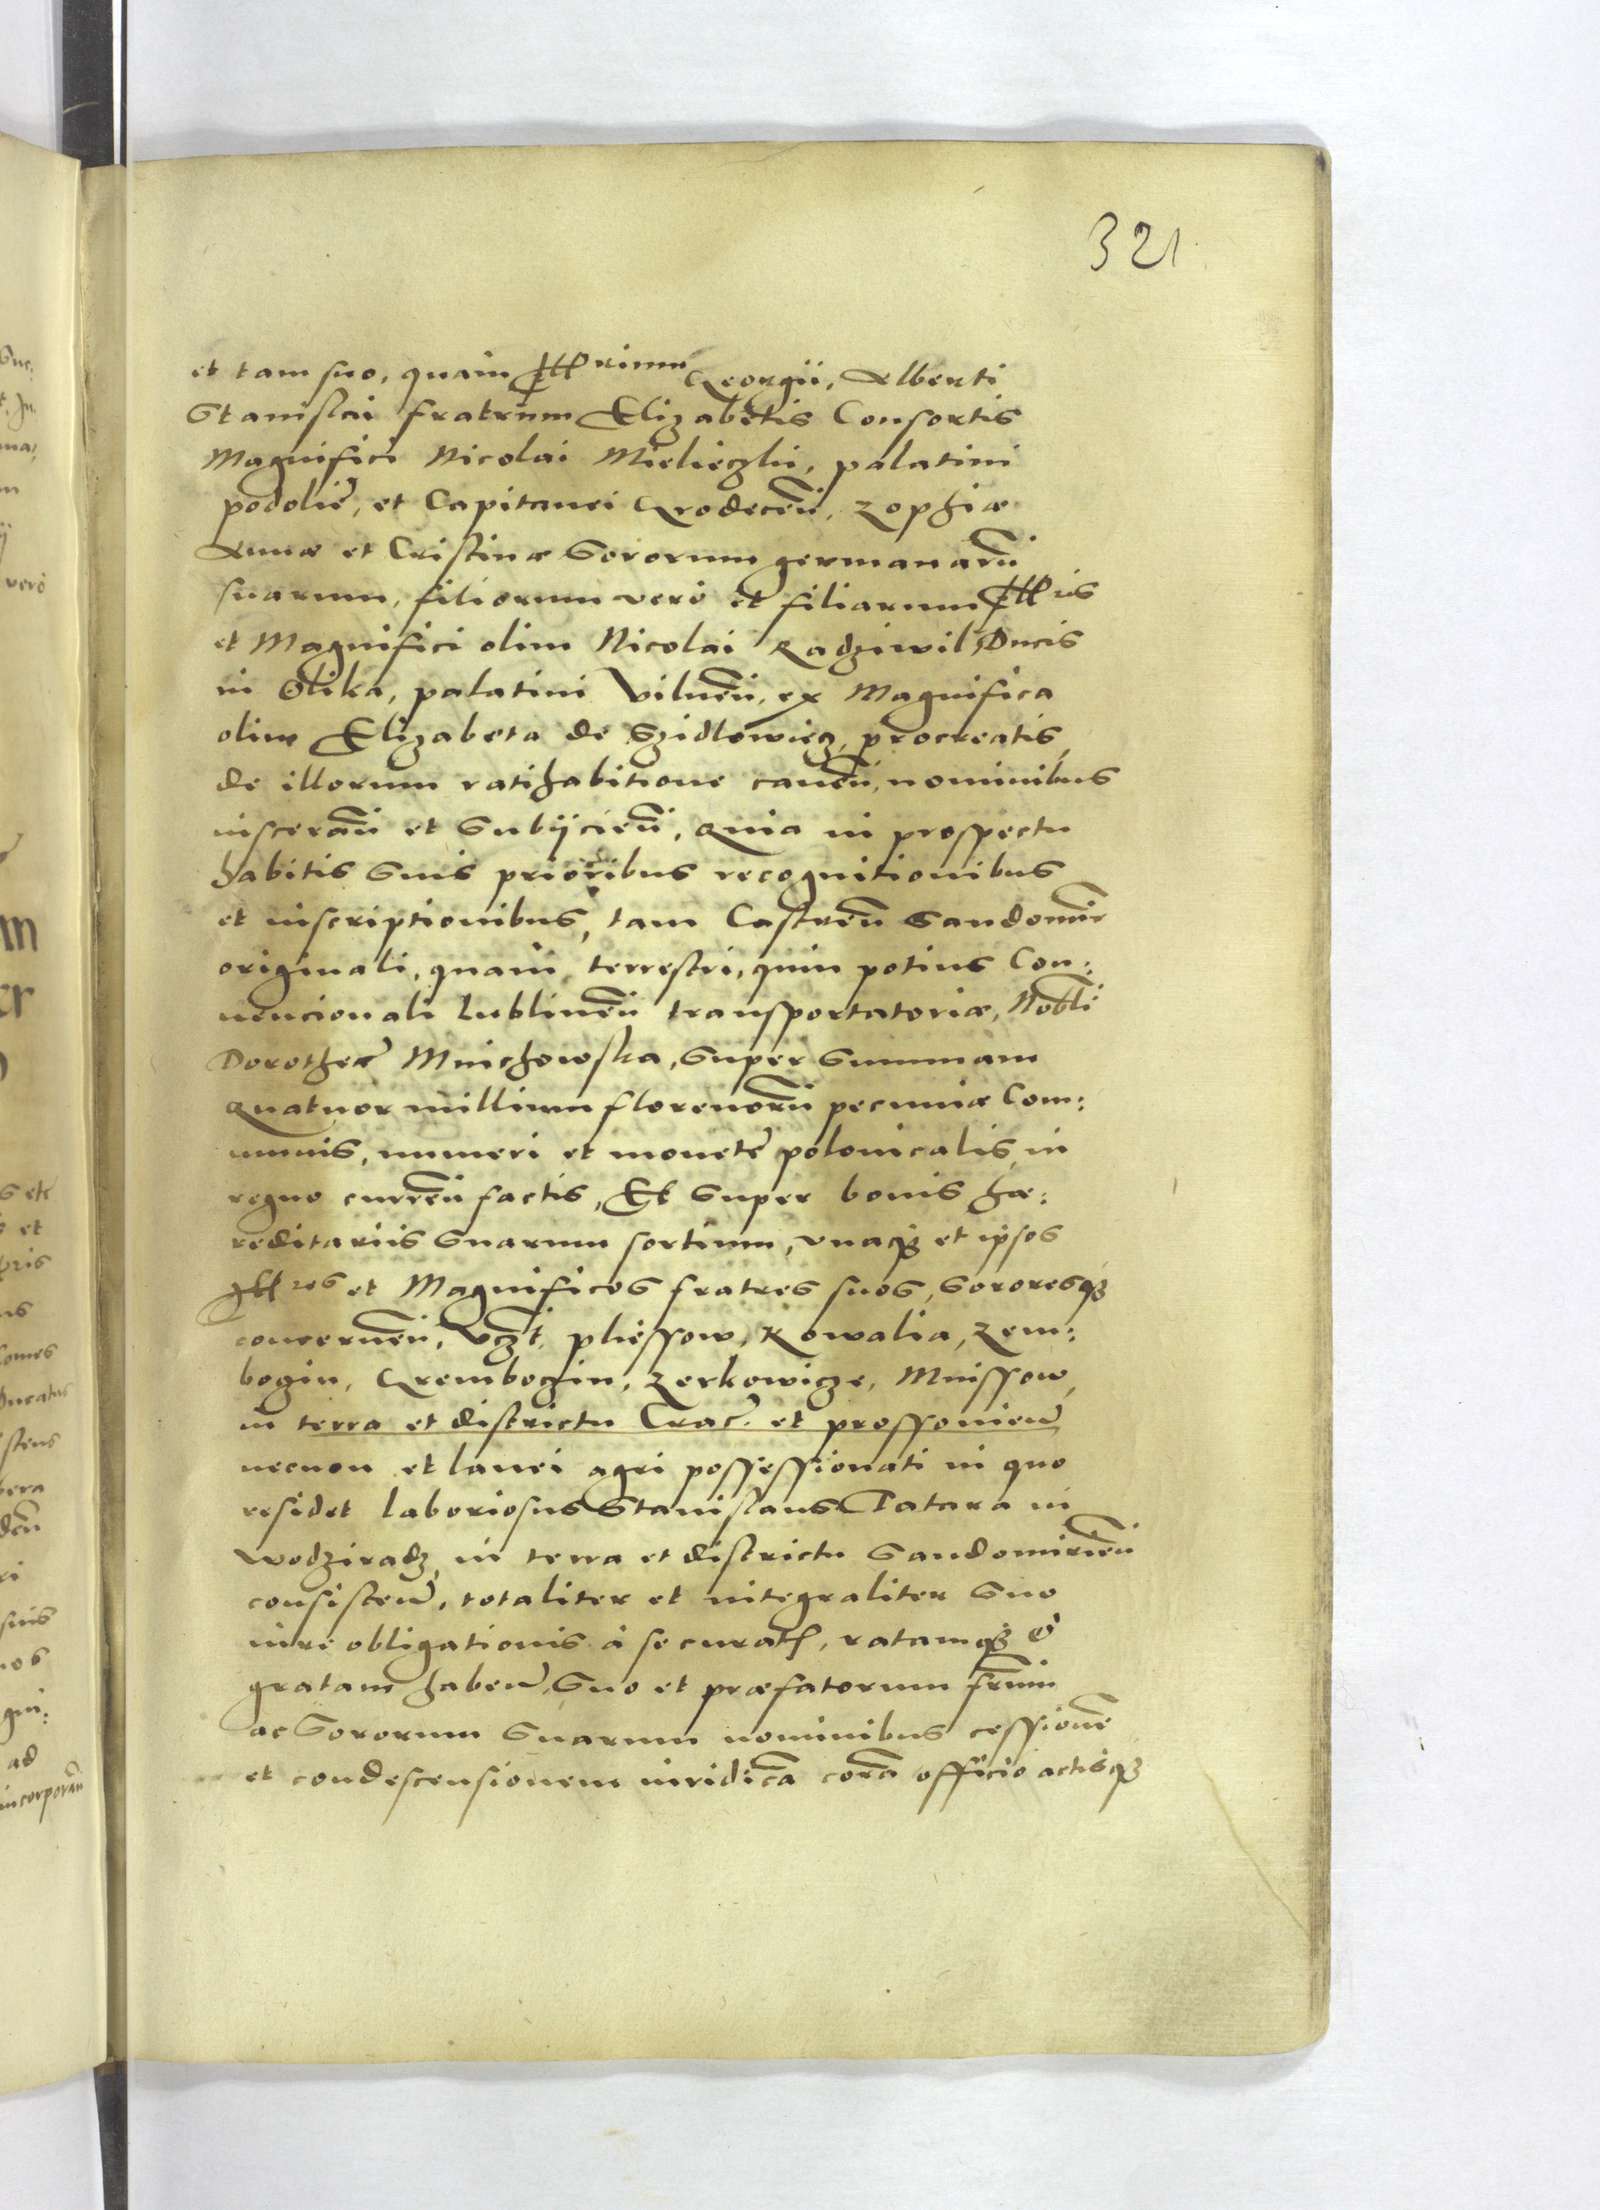 321
et tam suo, quam Illrium Georgii, Alberti
Stanislai fratrum Elizabetis Consortis
Magnifici Nicolai Mielieczkii, palatini
podolie, et Capitanei Grodecen, Zophiæ
Annæ et Cristinæ Sororum germanarū
suarum, filiorum vero et filiarum Illris
et Magnifici olim Nicolai Radziwil Ducis
in Olika, palatini Vilnen, ex Magnifica
olim Elizabeta de Szidlowiecz, procreatis,
de illorum ratihabitione caven, nominibus
inscerān et Subijcien, Quia in prospectu
habitis Suis prioribus recognitionibus
et inscriptionibus, tam Castren Sandomir
originali, quam terrestri, quin potius Con:
vencionali Lublinen transportatoriæ, Nobli
Dorotheæ Mnichowska, Super Summam
Quatuor millium florenorū pecuniæ Com:
munis, numeri et monete polonicalis, in
regno curren factis, Et Super bonis hæ:
reditariis Suarum sortium, vnaqȝ et ipsos
Illres et Magnificos fratres suos, Sororesqȝ
concernen, Vczt pliessow, Kowalia, Zem:
bozin, Grembozin, Zerkowicze, Mnissow,
in terra et districtu Crac. et prossovien
necnon et lanei agri possessionati in quo
residet laboriosus Stanislaus Tatara in
Wodziradz, in terra et districtu Sandomirien
consisten, totaliter et integraliter Suo
iure obligationis à se curatꝭ, ratamqȝ &
gratam haben, Suo et præfatorum frum
ac Sororum Suarum nominibus cessionē
et condescensionem iuridicā corā officio actisqȝ